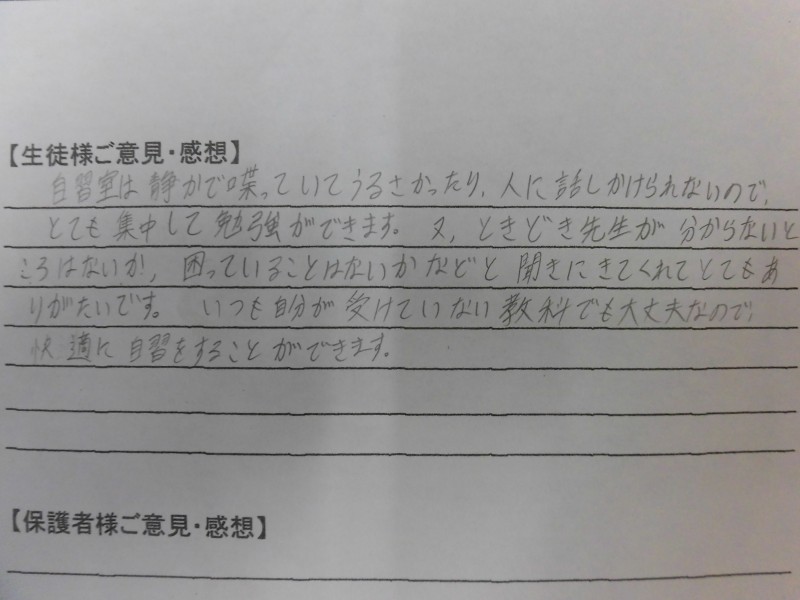 【生徒様ご意見・感想】
自習室は静かで喋っていてうるさかったり、人に話しかけられないので、
とても集中して勉強ができます。又、ときどき先生が分からないと
ころはないか、困っていることはないかなどと聞きにきてくれてとてもあ
りがたいです。いつも自分が受けていない教科でも大丈夫なので、
快適に自習をすることができます。
【保護者様ご意見・感想】